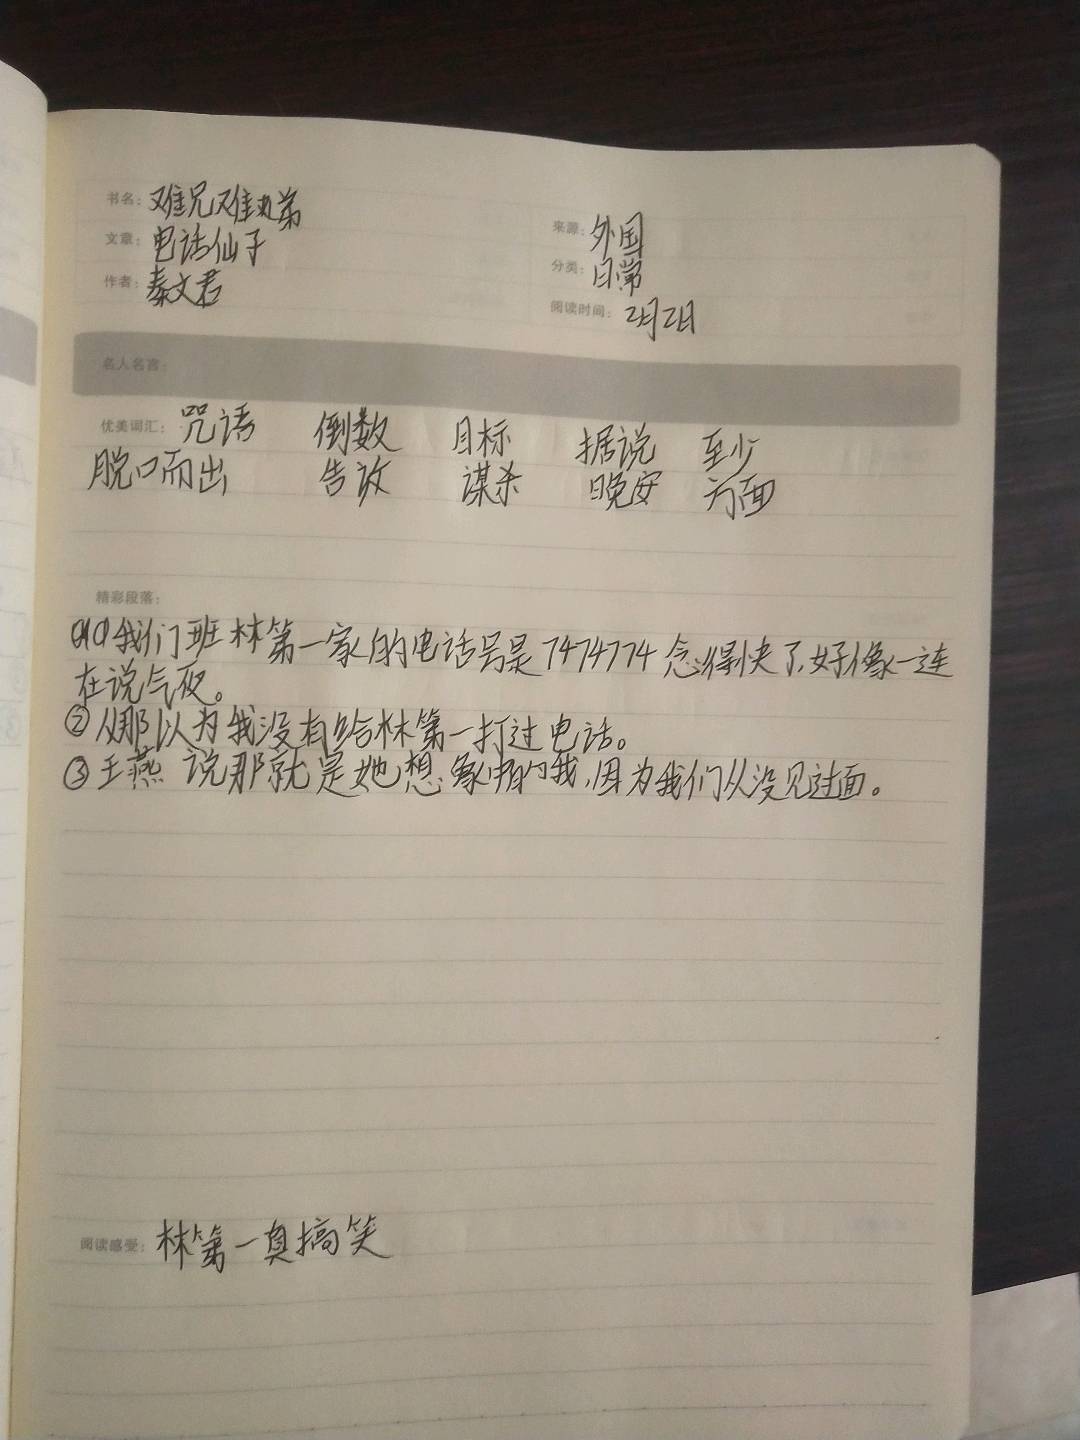 书名：难兄难弟
来源：外国
文章：电话仙子
分类：日常
作者：秦文君
阅读时间：2月2日
名人名言：
优美词汇：咒语 倒数 目标 据说 至少
脱口而出 告改 谋杀 晚安 方面
精彩段落：
我们班林第一家的电话号是7474774念得快了,好像一连
在说气死。
②从那以为我没有给林第一打过电话。
③王燕说那就是她想象中的我,因为我们从没见过面。
阅读感受：林第一真搞笑